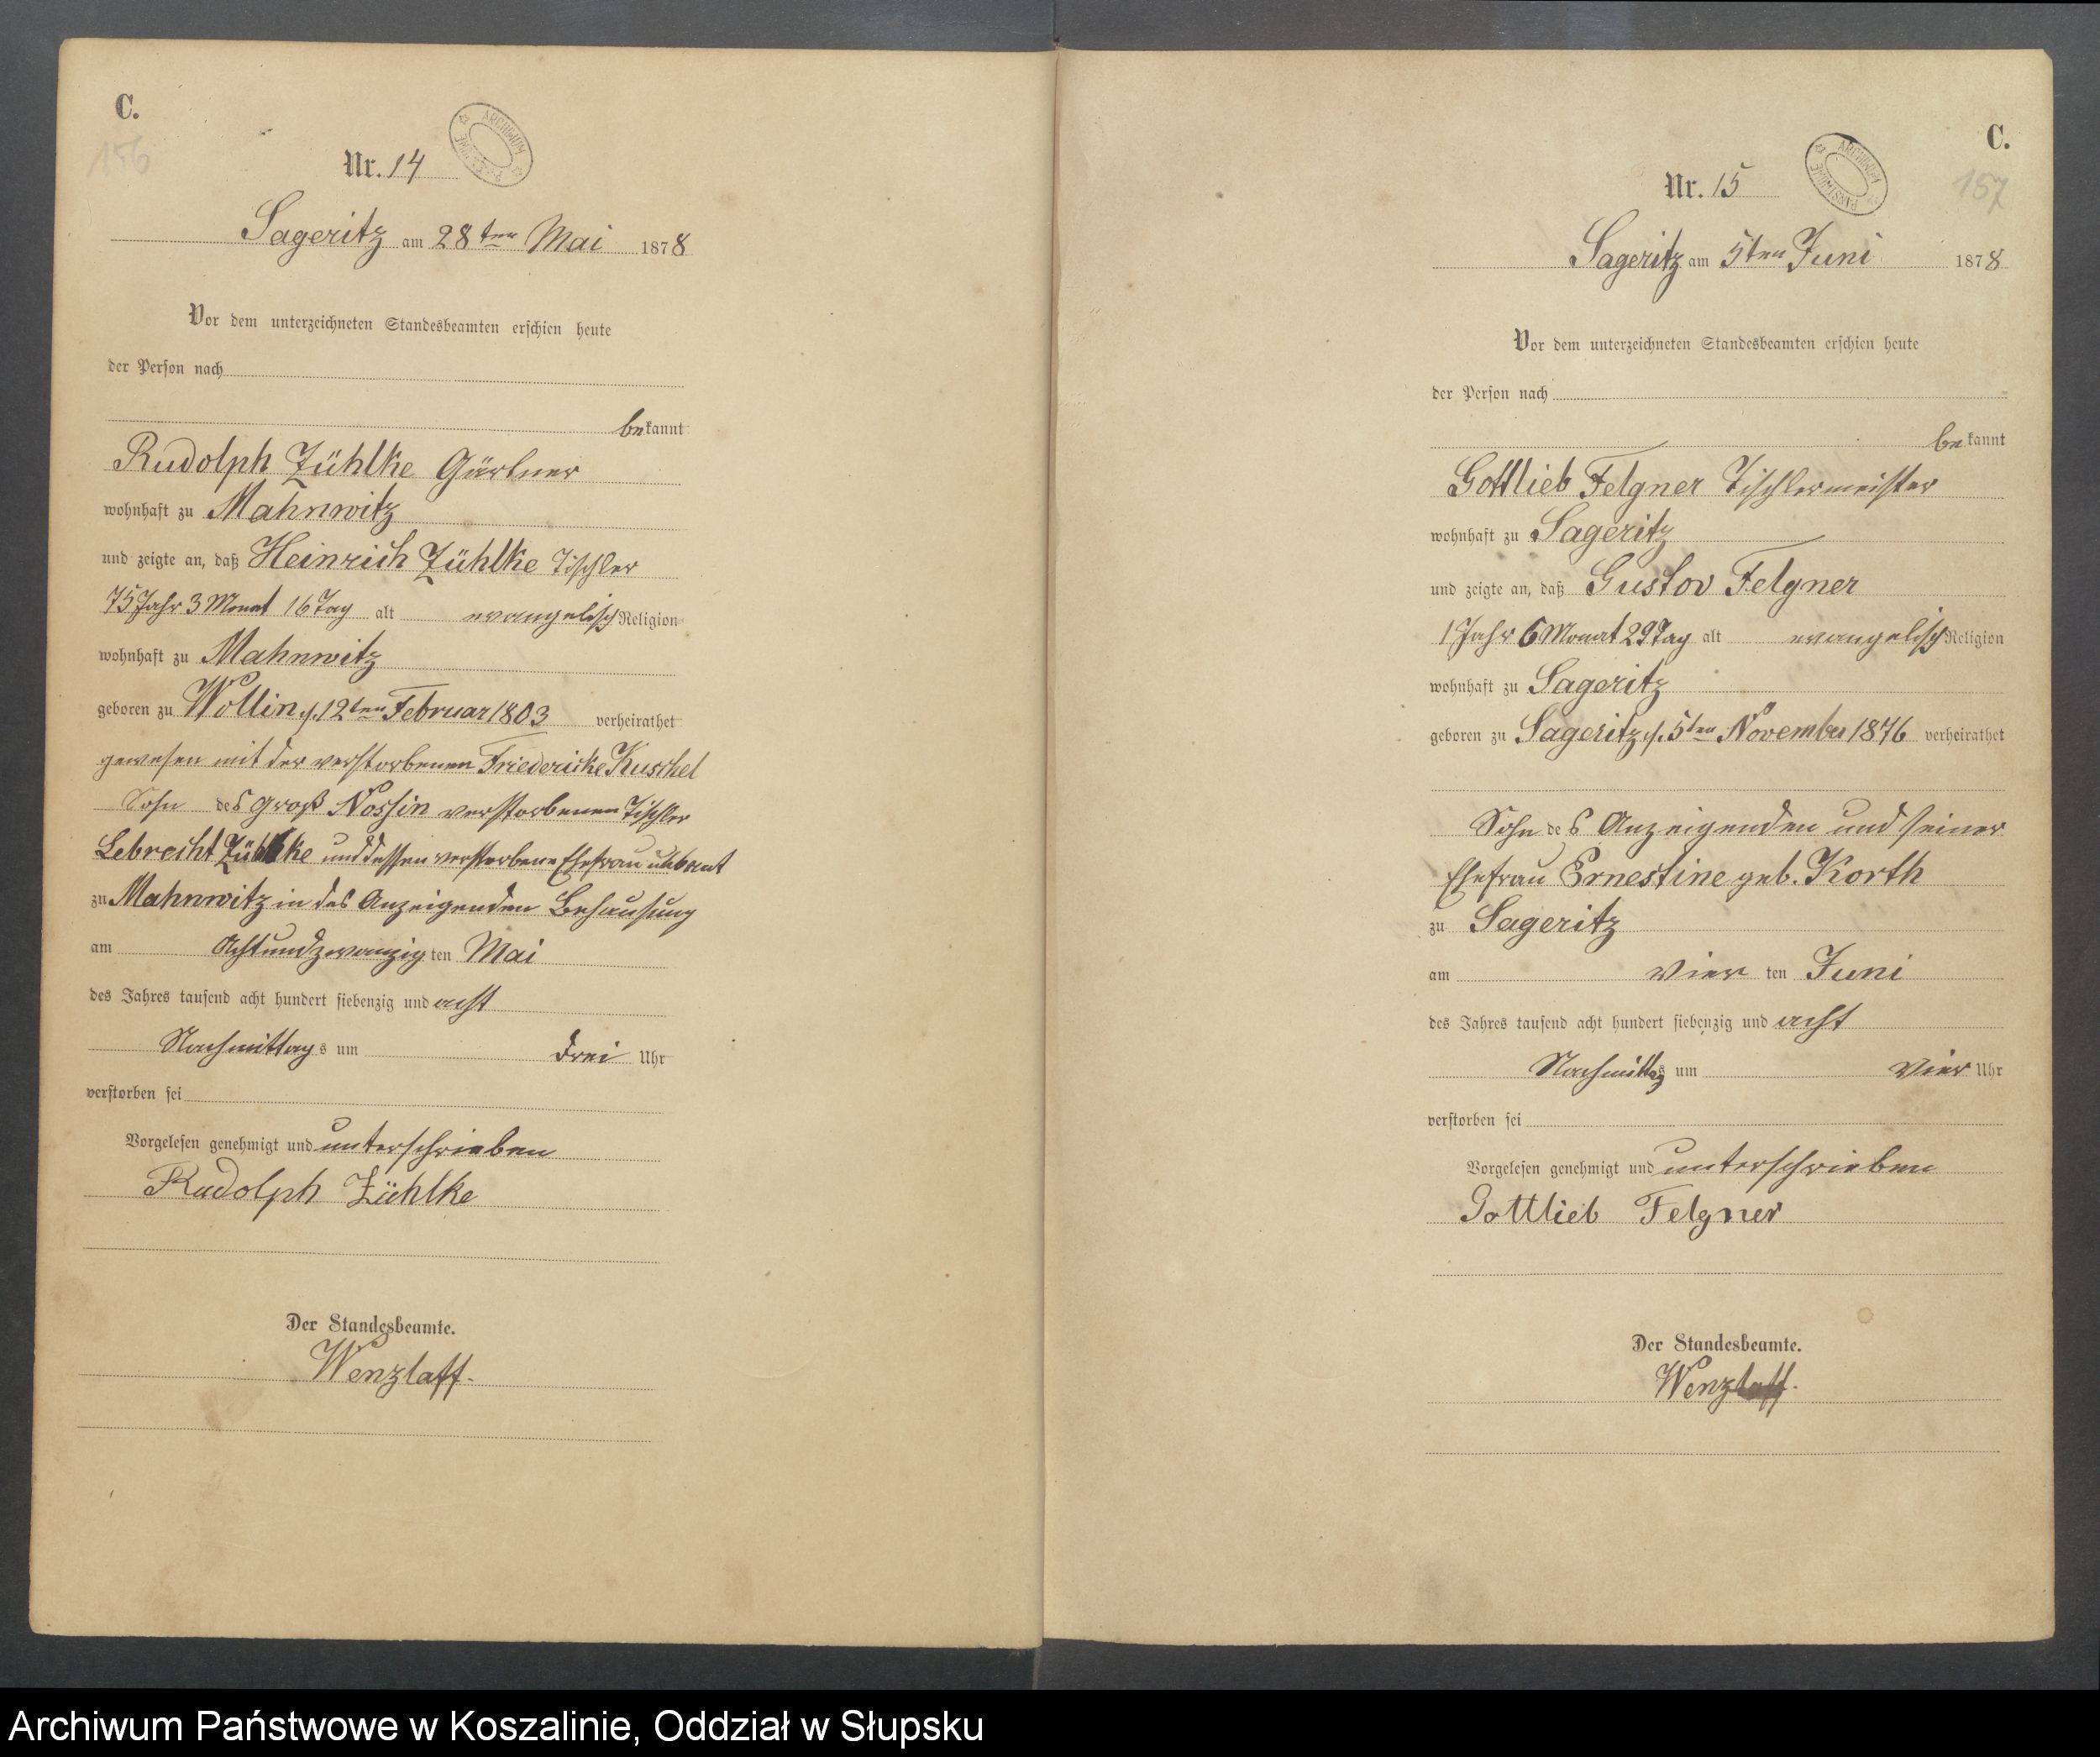 C.
156
ARCHIWUM
Nr. 14
Sageritz am 28ten Mai 1878
Vor dem unterzeichneten Standesbeamten erschien heute
der Person nach
bekannt
Rudolph Zühlke Gärtner
wohnhaft zu Mahnwitz
und zeigte an, daß Heinrich Zühlke Tischler
75 Jahr 3 Monat 16 Tag alt evangelisch Religion
wohnhaft zu Mahnwitz
geboren zu Wollin d. 12ten Februar 1803 verheirathet
gewesen mit der verstorbenen Friedericke Kuschel
Sohn des Groß Nossin verstorbenen Tischler
Lebrecht Zühlke und dessen verstorbene Ehefrau unbekannt
zu Mahnwitz in des Anzeigenden Behausung
am Achtundzwanzigten Mai
des Jahres tausend acht hundert siebenzig und acht
Nachmittags um drei Uhr
verstorben sei
Vorgelesen genehmigt und unterschrieben
Rudolph Zühlke
Der Standesbeamte.
Wenzlaff.
C.
157
ARCHIWUM PAŃSTWOWE
Nr. 15
Sageritz am 5ten Juni 1878
Vor dem unterzeichneten Standesbeamten erschien heute
der Person nach
bekannt
Gottlieb Felgner Tischlermeister
wohnhaft zu Sageritz
und zeigte an, daß Gustav Felgner
1 Jahr 6 Monat 29 Tag alt evangelisch Religion
wohnhaft zu Sageritz
geboren zu Sageritz d. 5ten November 1876 verheirathet
Sohn des Anzeigenden und seiner
Ehefrau Ernestine geb. Korth
zu Sageritz
am vier ten Juni
des Jahres tausend acht hundert siebenzig und acht
Nachmittags um vier Uhr
verstorben sei
Vorgelesen genehmigt und unterschrieben
Gottlieb Felgner
Der Standesbeamte.
Wenzlaff.
Archiwum Państwowe w Koszalinie, Oddział w Słupsku